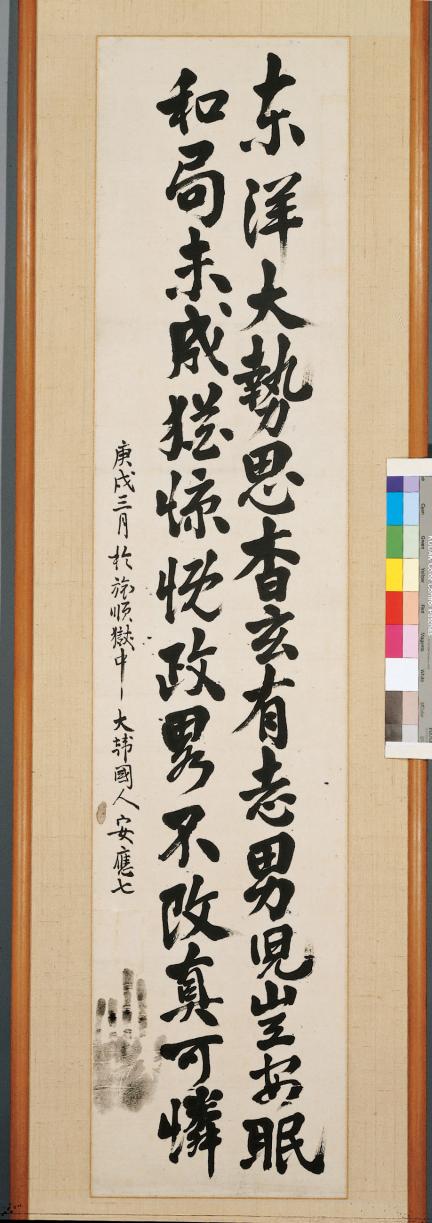 東洋大勢思杳玄有志男児豈安眠
和局未成猶慷慨政畧不改真可憐
庚戌三月 於旅順獄中 大韓國人 安應七